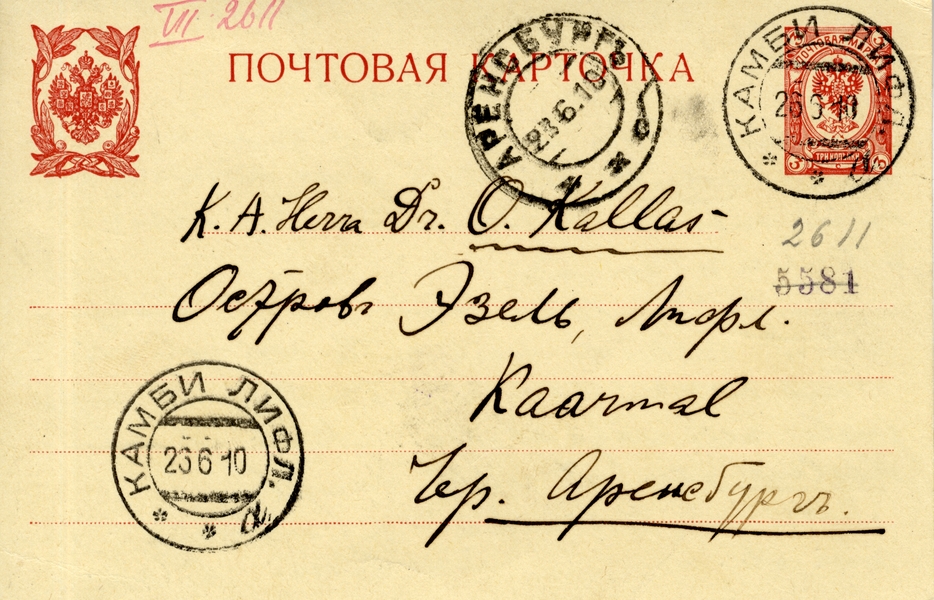 VIII 2611
ПОЧТОВАЯ КАРТОЧКА
АРЕНСБУРГЪ
23.6.10
ПОЧТОВАЯ МАРКА
КАМБИ ЛИФЛ.
26 6 10
ТРИ КОП.
K. A. Herra Dr. O. Kallas
2611
5581
Островъ Эзель, Лифл.
Kaarmal
Чр. Аренсбургъ.
КАМБИ ЛИФЛ.
26 6 10